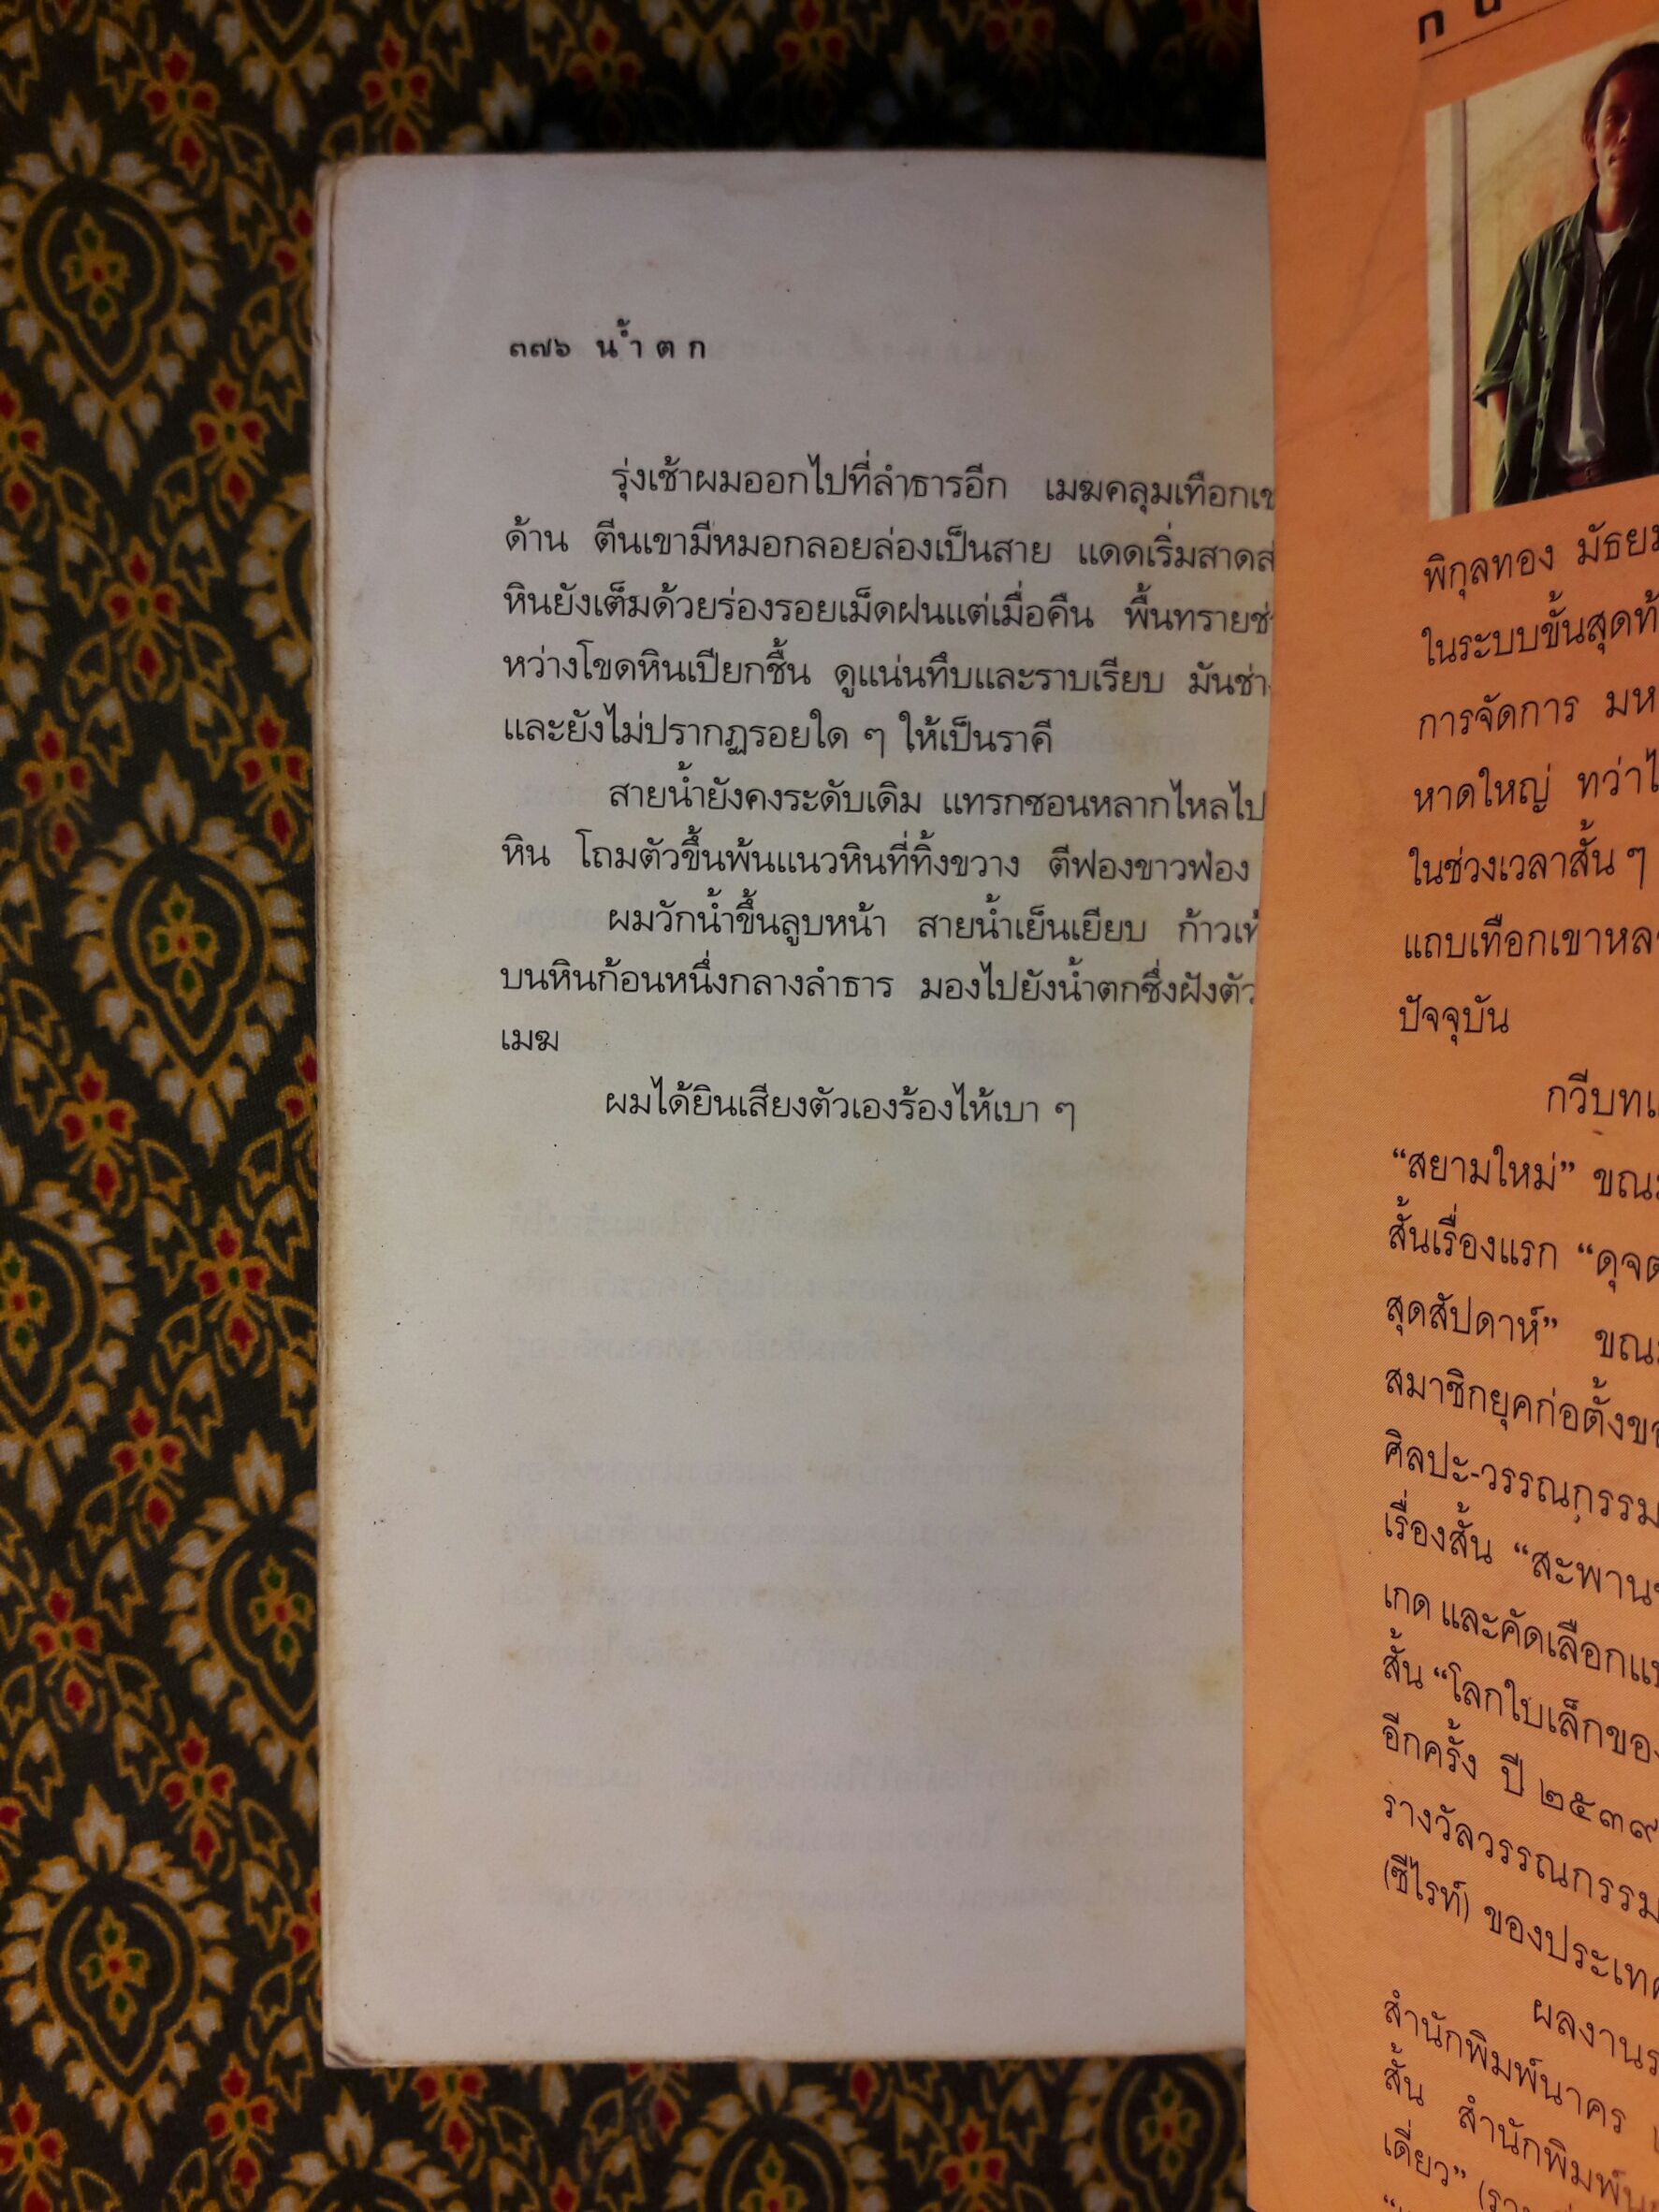 ๓๗๖ น้ำตก
รุ่งเช้าผมออกไปที่ลำธารอีก เมฆคลุมเทือกเข
ด้าน ตีนเขามีหมอกลอยล่องเป็นสาย แดดเริ่มสาดส
หินยังเต็มด้วยร่องรอยเม็ดฝนแต่เมื่อคืน พื้นทรายช่
หว่างโขดหินเปียกชื้น ดูแน่นทึบและราบเรียบ มันช่า
และยังไม่ปรากฏรอยใด ๆ ให้เป็นราคี
สายน้ำยังคงระดับเดิม แทรกซอนหลากไหลไป
หิน โถมตัวขึ้นพ้นแนวหินที่ทิ้งขวาง ตีฟองขาวฟ่อง
ผมวักน้ำขึ้นลูบหน้า สายน้ำเย็นเยียบ ก้าวเท้
บนหินก้อนหนึ่งกลางลำธาร มองไปยังน้ำตกซึ่งฝังตัว
เมฆ
ผมได้ยินเสียงตัวเองร้องไห้เบา ๆ
ก น
พิกุลทอง มัธยม
ในระบบขั้นสุดท้
การจัดการ มห
หาดใหญ่ ทว่าไ
ในช่วงเวลาสั้น ๆ
แถบเทือกเขาหล
ปัจจุบัน
กวีบทแ
“สยามใหม่” ขณะ
สั้นเรื่องแรก “ดุจต
สุดสัปดาห์” ขณะ
สมาชิกยุคก่อตั้งขอ
ศิลปะ-วรรณกรรม
เรื่องสั้น “สะพาน
เกด และคัดเลือกแป
สั้น “โลกใบเล็กของ
อีกครั้ง ปี ๒๕๓๙
รางวัลวรรณกรรม
(ซีไรท์) ของประเทศ
ผลงานร
สำนักพิมพ์นาคร
สั้น สำนักพิมพ์น
เดี่ยว” (ราง